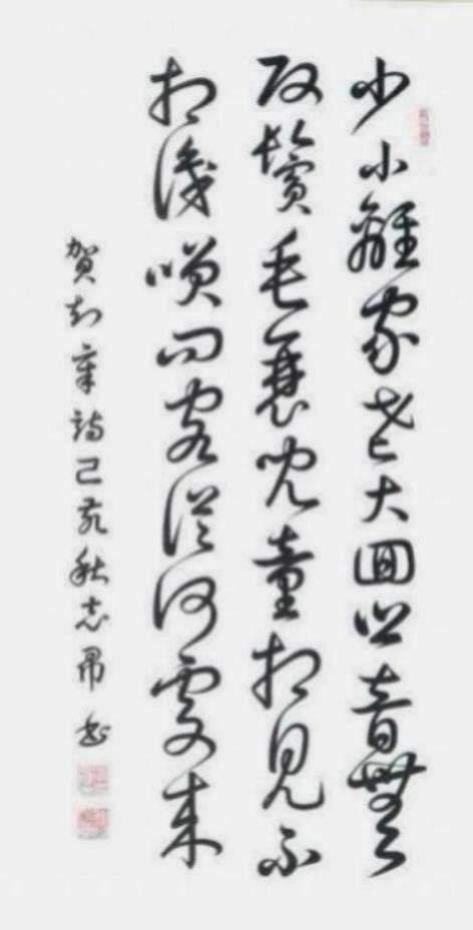 少小離家老大回鄉音無
改鬢毛衰兒童相見不
相識笑問客從何處来
賀知章詩己亥秋志昂书